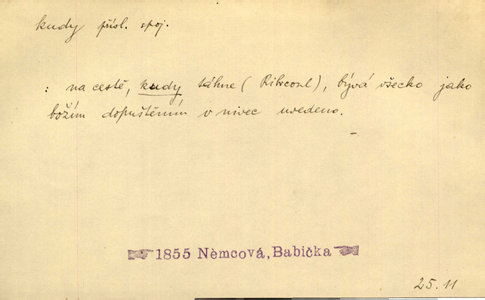 kudy přísl. spoj.
: na cestě, kudy táhne (Ribrcoul), bývá všecko jako
božím dopuštěním v nivec uvedeno.
1855 Němcová, Babička
25.11